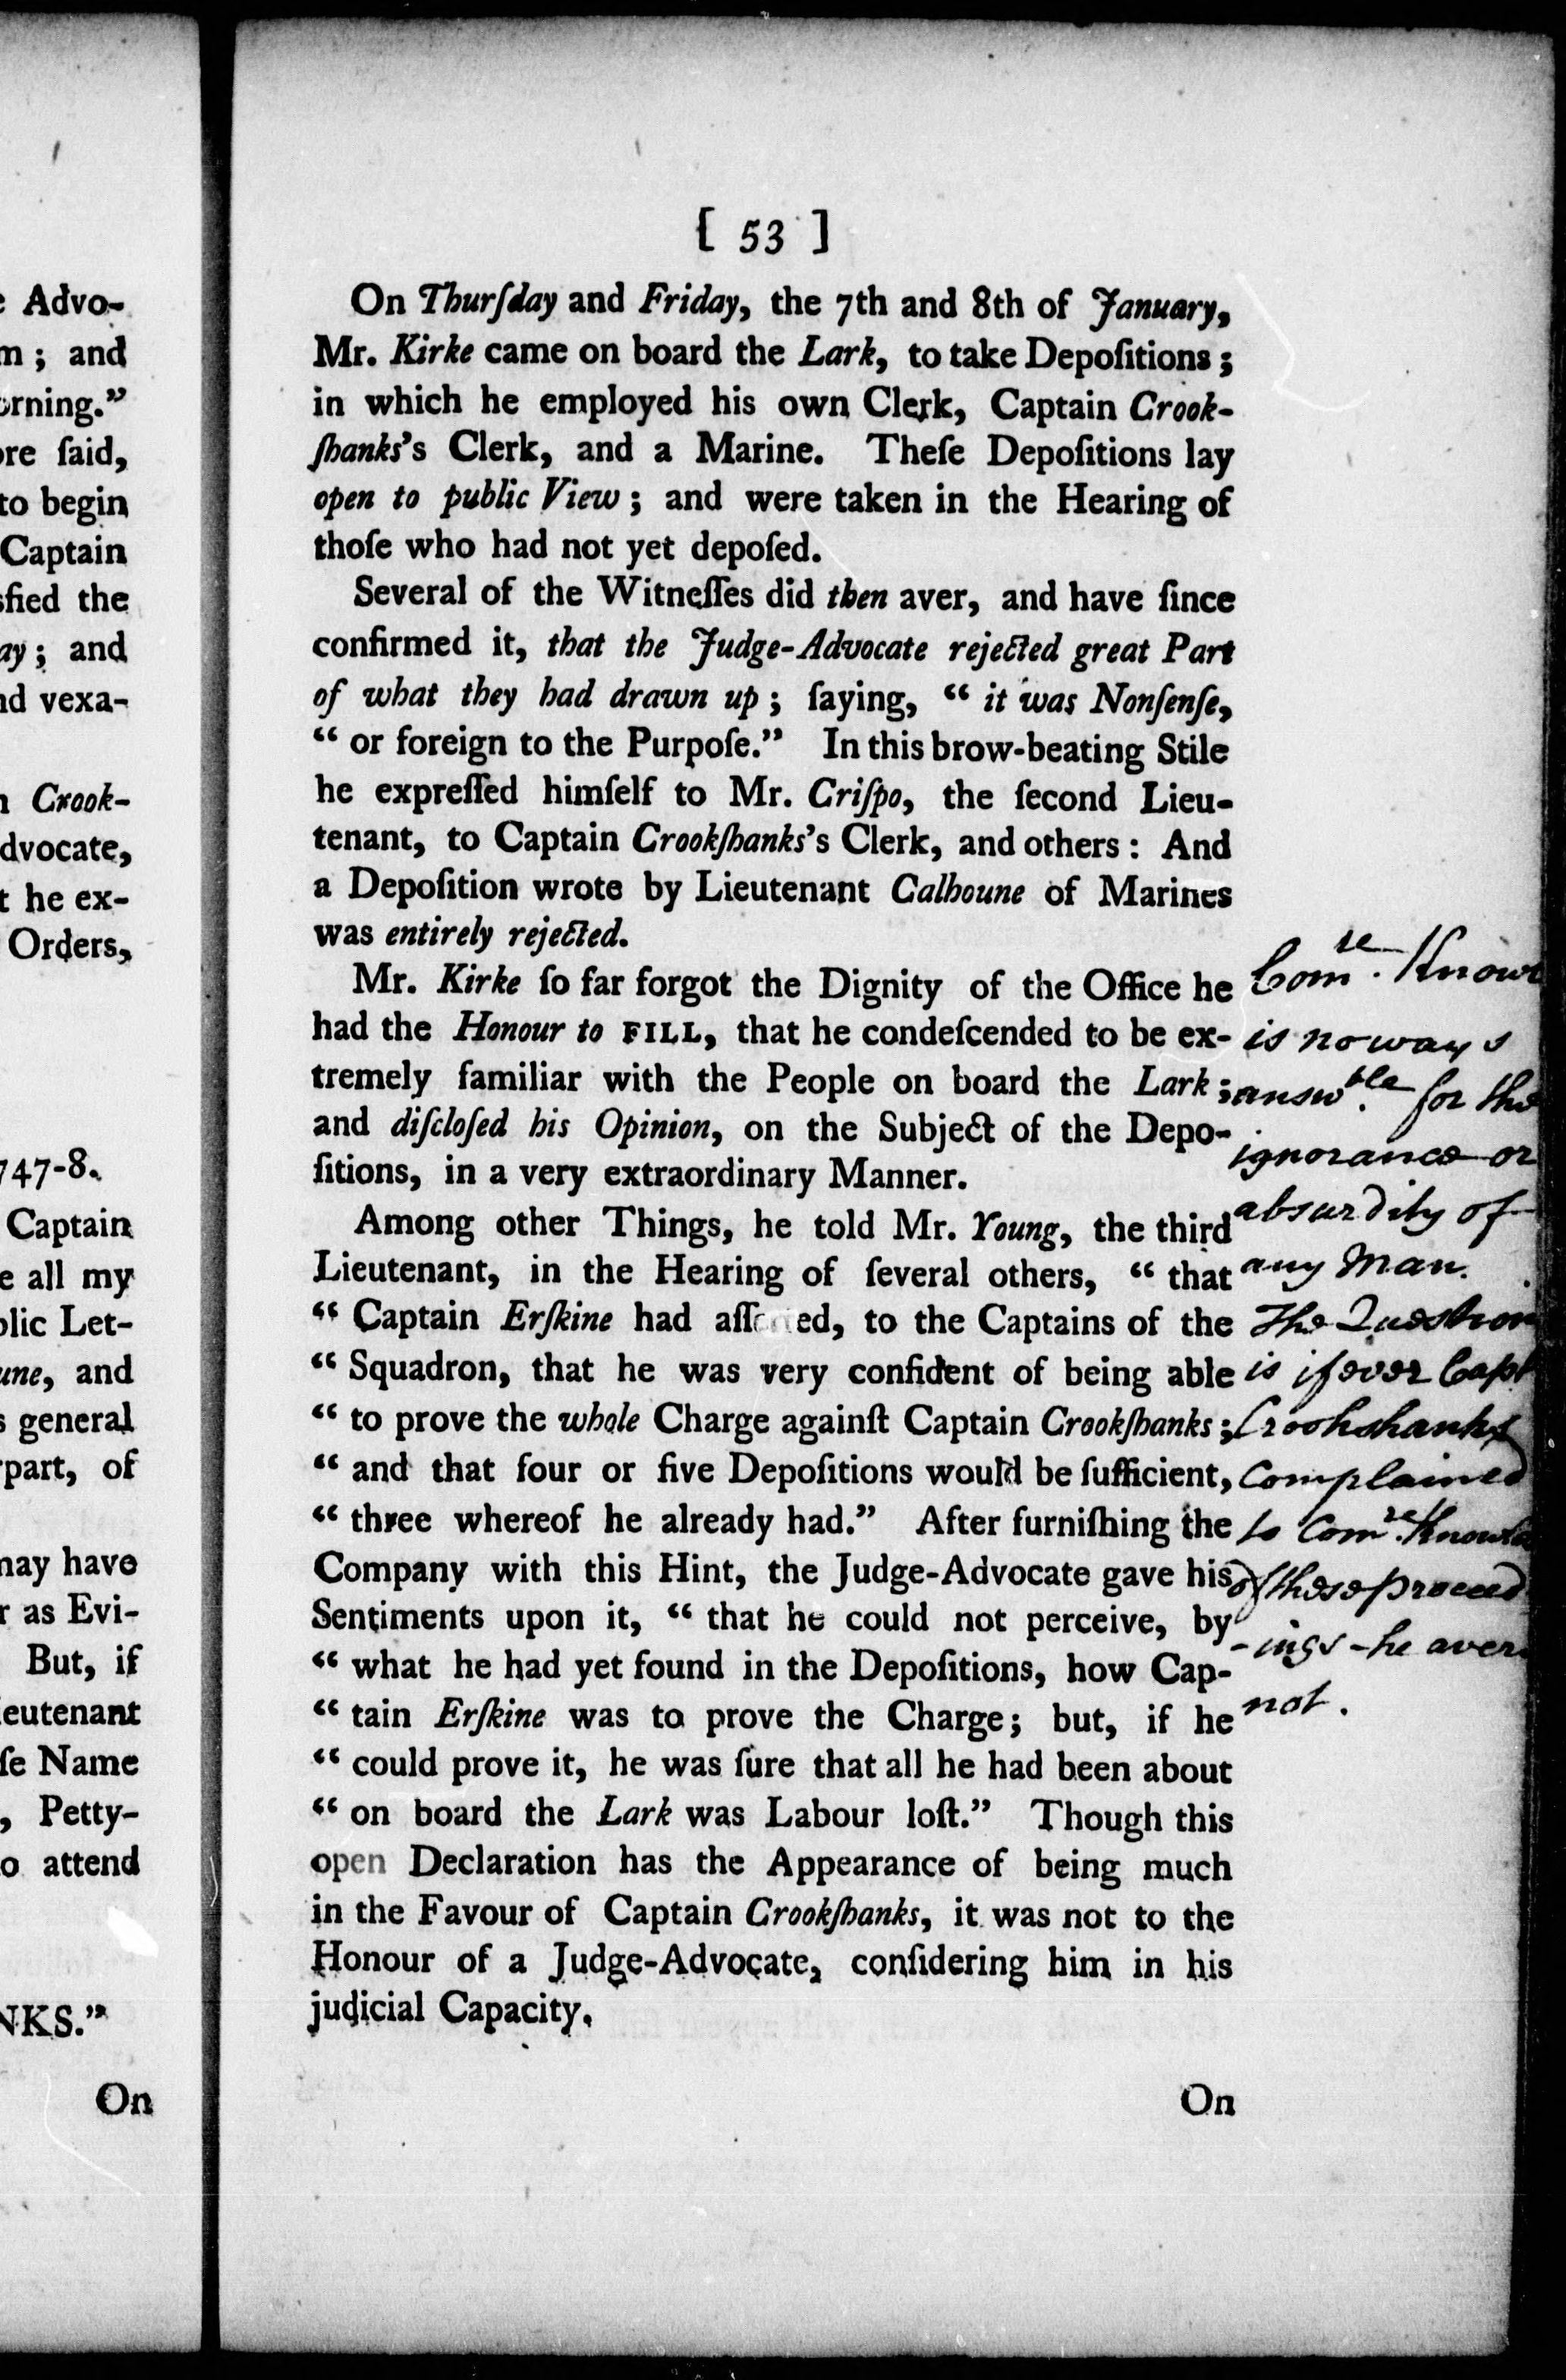 e Advo-
m; and
orning.”
ore ſaid,
to begin
Captain
sfied the
ay; and
nd vexa-
n Crook-
dvocate,
t he ex-
Orders,
747-8.
Captain
e all my
blic Let-
une, and
s general
part, of
may have
r as Evi-
But, if
ieutenant
ſe Name
, Petty-
o attend
NKS.”
On
[ 53 ]
On Thurſday and Friday, the 7th and 8th of January,
Mr. Kirke came on board the Lark, to take Depoſitions;
in which he employed his own Clerk, Captain Crook-
ſhanks's Clerk, and a Marine. Theſe Depoſitions lay
open to public View; and were taken in the Hearing of
thoſe who had not yet depoſed.
Several of the Witneſſes did then aver, and have ſince
confirmed it, that the Judge-Advocate rejected great Part
of what they had drawn up; ſaying, “ it was Nonſenſe,
“ or foreign to the Purpoſe.” In this brow-beating Stile
he expreſſed himſelf to Mr. Criſpo, the ſecond Lieu-
tenant, to Captain Crookſhanks's Clerk, and others: And
a Depoſition wrote by Lieutenant Calhoune of Marines
was entirely rejected.
Mr. Kirke ſo far forgot the Dignity of the Office he
had the Honour to FILL, that he condeſcended to be ex-
tremely familiar with the People on board the Lark;
and diſcloſed his Opinion, on the Subject of the Depo-
ſitions, in a very extraordinary Manner.
Among other Things, he told Mr. Young, the third
Lieutenant, in the Hearing of ſeveral others, “ that
“ Captain Erſkine had aſſerted, to the Captains of the
“ Squadron, that he was very confident of being able
“ to prove the whole Charge againſt Captain Crookſhanks;
“ and that four or five Depoſitions would be ſufficient,
“ three whereof he already had.” After furniſhing the
Company with this Hint, the Judge-Advocate gave his
Sentiments upon it, “ that he could not perceive, by
“ what he had yet found in the Depoſitions, how Cap-
“ tain Erſkine was to prove the Charge; but, if he
“ could prove it, he was ſure that all he had been about
“ on board the Lark was Labour loſt.” Though this
open Declaration has the Appearance of being much
in the Favour of Captain Crookſhanks, it was not to the
Honour of a Judge-Advocate, conſidering him in his
judicial Capacity.
On
Comre. Knowl
is noways
answble. for the
ignorance or
absurdity of
any Man.
The Question
is if ever Capt
Crookshanks
complained
to Comre. Knowle
of these proceed
-ings - he avers
not.